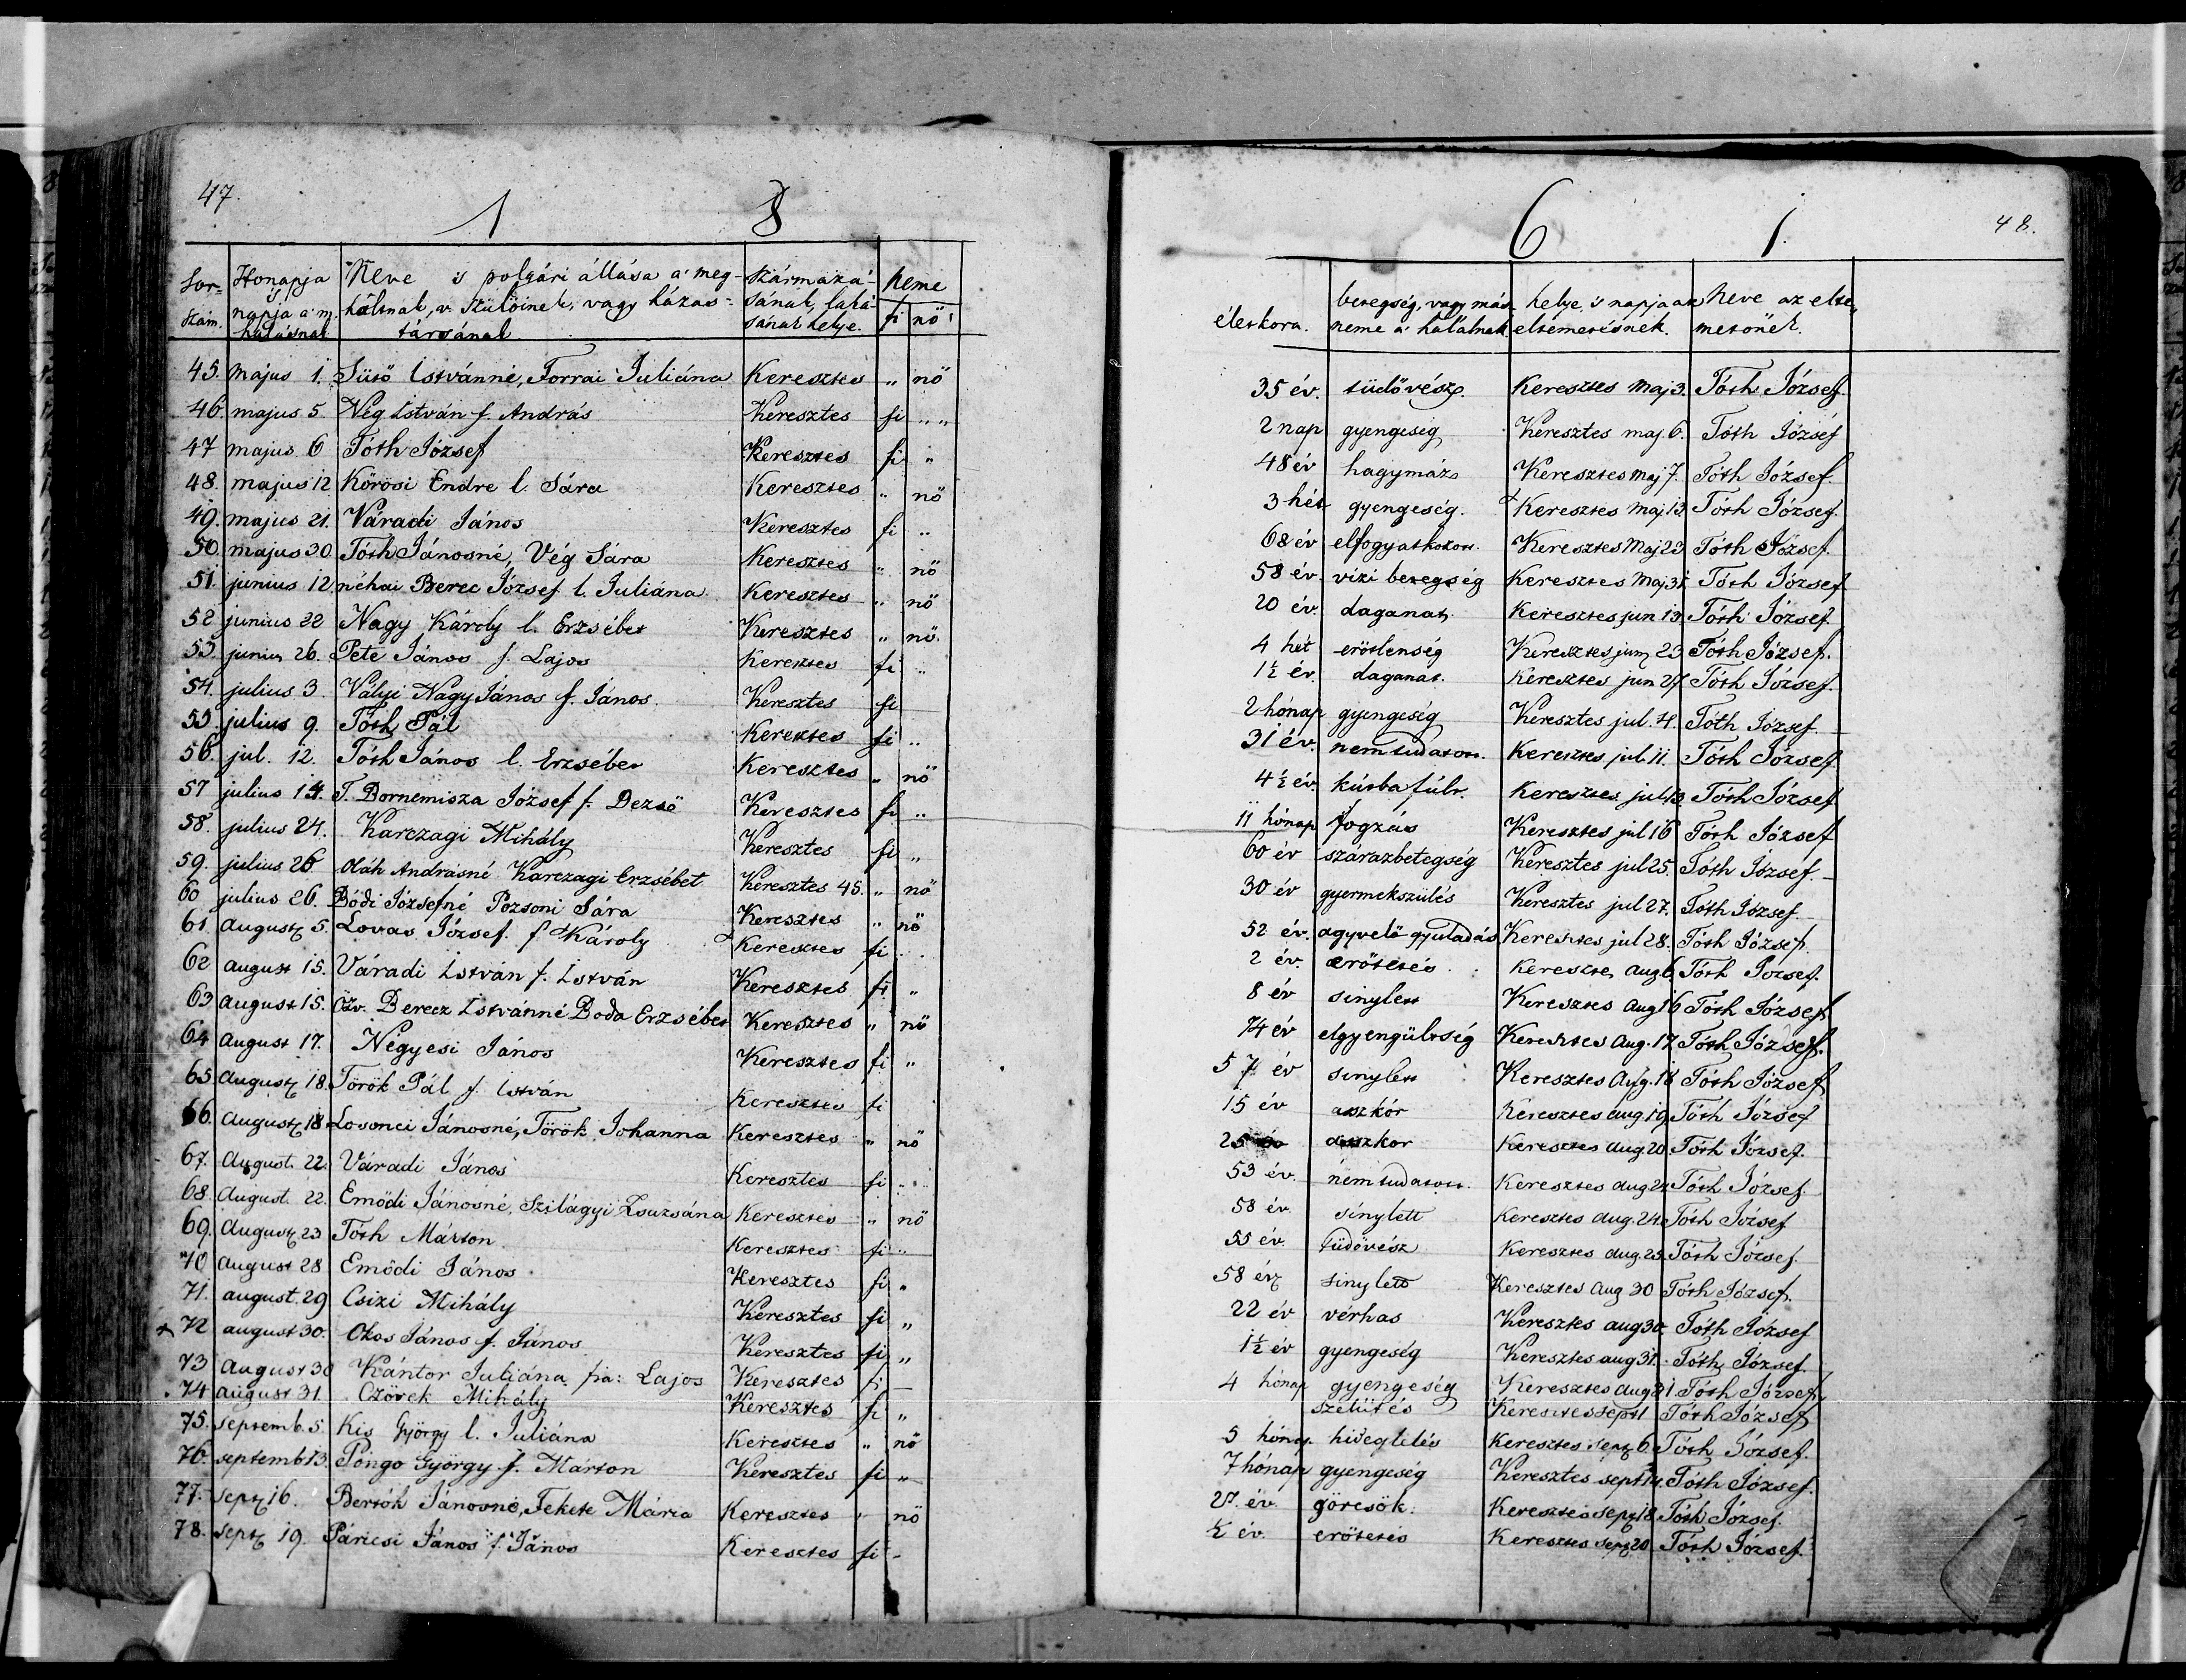 47.
1 8
Sor-szám. Honapja és napja a' m. halásnak Neve is polgári állása a' meg-hóltnak, v. szülőinek, vagy házas-társának Származá-sának, laká-sának helye. neme fi nő
45. majus 1. Sütő Istvánné, Forrai Juliána Keresztes „ nő
46. majus 5. Vég István f. András Keresztes fi „ „
47 majus 6 Tóth József Keresztes fi „
48. majus 12 Kőrösi Endre l. Sára Keresztes „ nő
49. majus 21. Váradi János Keresztes fi „
50. majus 30. Tóth Jánosné, Vég Sára Keresztes „ nő
51. junius 12. néhai Berec József l. Juliána Keresztes „ nő
52 junius 22 Nagy Károly l. Erzsébet Keresztes „ nő.
53. junius 26. Pete János f. Lajos Keresztes fi „
54. julius 3. Vályi Nagy János f. János. Keresztes fi
55. julius 9. Tóth Pál Keresztes fi „
56. jul. 12. Tóth János l. Erzsébet Keresztes „ nő
57 julius 14. T. Bornemisza József f. Dezső Keresztes fi „
58. julius 24. Karczagi Mihály Keresztes fi „
59. julius 26 Oláh Andrásné Karczagi Erzsébet Keresztes 45. „ nő
60 julius 26. Bódi Józsefné Pozsoni Sára Keresztes „ nő
61. August 5. Lovas József. f Károly Keresztes fi
62 august 15. Váradi István f. István Keresztes fi „
63 august 15. Özv. Berecz Istvánné Boda Erzsébet Keresztes „ nő
64 august 17. Négyesi János Keresztes fi „
65. august 18. Török Pál f. István Keresztes fi
66. august 18 Losonci Jánosné, Török Johanna Keresztes „ nő
67. August. 22. Váradi János Keresztes fi „
68. August. 22. Emődi Jánosné, Szilágyi Zsuzsána Keresztes „ nő
69. August 23 Tóth Márton Keresztes fi „
70 august 28 Emődi János Keresztes fi „
71. august. 29 Csizi Mihály Keresztes fi „
72 august 30. Okos János f. János Keresztes fi „
73 August 30 Kántor Juliána fia: Lajos Keresztes fi —
74 august 31. Czövek Mihály Keresztes fi „
75. septemb. 5. Kis György l. Juliána Keresztes „ nő
76. septemb 13. Pongo György f. Márton Keresztes fi „
77. Sept 16. Bertók Jánosné, Fekete Mária Keresztes „ nő
78. Sept 19. Páricsi János f. János Keresztes fi -
48.
6 1.
életkora. betegség, vagy más neme a' halálnak helye és napja az eltemetésnek. Neve az elte-metőnek.
35 év. tüdővész. Keresztes Maj 3. Tóth József.
2 nap gyengeség Keresztes maj. 6. Tóth József
48 év hagymáz Keresztes Maj 7. Tóth József
3 hét gyengeség. Keresztes Maj. 13. Tóth József.
68 év elfogyatkozott. Keresztes Maj 23 Tóth József.
58 év. vizi betegség Keresztes Maj 31. Tóth József.
20 év. daganat Keresztes jun 13. Tóth József
4 hét erőtlenség Keresztes jun 23 Tóth József.
1½ év. daganat. Keresztes jun 27 Tóth József.
2 hónap gyengeség Keresztes jul. 4. Tóth József.
31 év. nem tudatott. Keresztes jul. 11. Tóth József
4½ év kútba fúlt. Keresztes jul 13. Tóth József
11 hónap fogzás Keresztes jul 16 Tóth József
60 év szárazbetegség Keresztes jul 25. Tóth József.
30 év gyermekszülés Keresztes jul 27. Tóth József
52 év. agyvelő gyuladás Keresztes jul 28. Tóth József.
2 év. erőtetés Keresztes aug 6 Tóth József.
8 év sinylett Keresztes aug 16 Tóth József
74 év elgyengültség Keresztes Aug. 17 Tóth József.
57 év sinylett Keresztes Aug. 18 Tóth József
15 év aszkór Keresztes aug. 19. Tóth József
25 év aszkor Keresztes aug. 20 Tóth József.
53 év. nem tudatott. Keresztes aug 24 Tóth József.
58 év. sinylett Keresztes aug. 24. Tóth József
55 év. tüdővész Keresztes aug. 25. Tóth József.
58 év sinylett Keresztes Aug 30 Tóth József.
22 év vérhas Keresztes aug 30 Tóth József
1½ év gyengeség Keresztes aug 31. Tóth József
4 hónap gyengeség Keresztes aug 31. Tóth József
szélütés Keresztes sept 1 Tóth József
5 hónap. hideglelés Keresztes sept 6 Tóth József.
7 hónap gyengeség Keresztes sept 14. Tóth József.
27. év. görcsök. Keresztes sept 18 Tóth József.
½ év. erőtetés Keresztes sept 20 Tóth József.